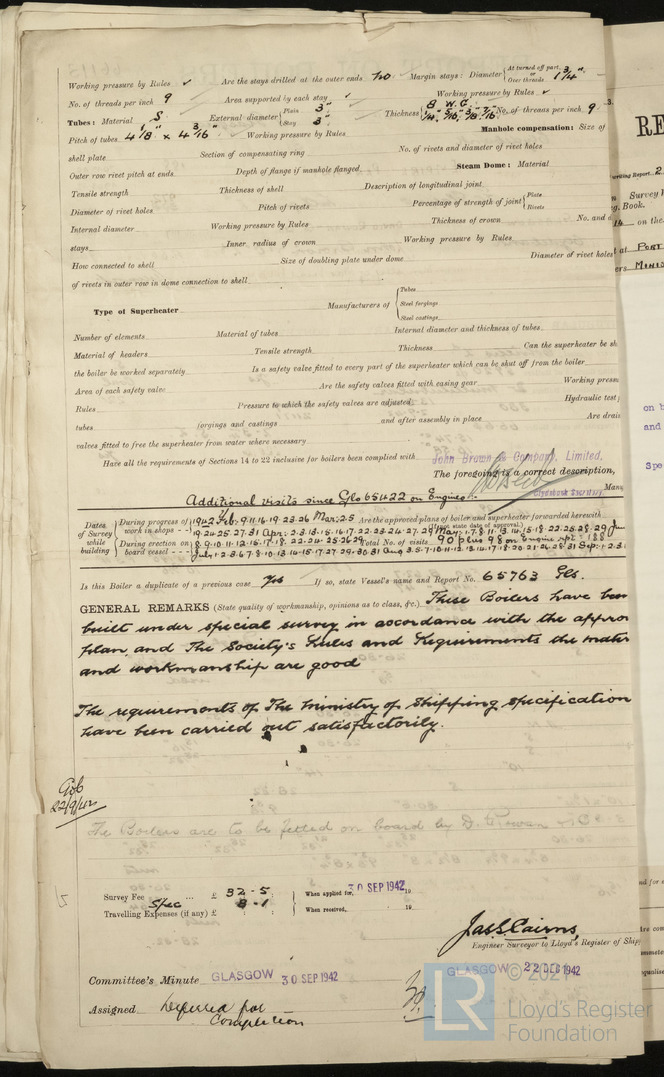 Working pressure by Rules ✓ Are the stays drilled at the outer ends No Margin stays: Diameter { At turned off part, or Over threads 1 3/4" 
No. of threads per inch 9 Area supported by each stay ✓ Working pressure by Rules ✓
Tubes: Material S External diameter { Plain 3" Stay 3" Thickness { 8 W.G. 1/4" 5/16" 3/8" 7/16" No. of threads per inch 9
Pitch of tubes 4 1/8" x 4 3/16" Working pressure by Rules Manhole compensation: Size of
shell plate Section of compensating ring No. of rivets and diameter of rivet holes
Outer row rivet pitch at ends Depth of flange if manhole flanged Steam Dome: Material
Tensile strength Thickness of shell Description of longitudinal joint
Diameter of rivet holes Pitch of rivets Percentage of strength of joint { Plate Rivets
Internal diameter Working pressure by Rules Thickness of crown No. and d
stays Inner radius of crown Working pressure by Rules
How connected to shell Size of doubling plate under dome Diameter of rivet holes
of rivets in outer row in dome connection to shell
Type of Superheater Manufacturers of { Tubes Steel forgings Steel castings
Number of elements Material of tubes Internal diameter and thickness of tubes
Material of headers Tensile strength Thickness Can the superheater be sh
the boiler be worked separately Is a safety valve fitted to every part of the superheater which can be shut off from the boiler
Area of each safety valve Are the safety valves fitted with easing gear Working press
Rules Pressure to which the safety valves are adjusted Hydraulic test
tubes forgings and castings and after assembly in place Are drai
valves fitted to free the superheater from water where necessary
Have all the requirements of Sections 14 to 22 inclusive for boilers been complied with
John Brown & Company, Limited.
The foregoing is a correct description,
Clydebank Secretary Manu
Additional visits since Glo 65422 on Engines.
Dates of Survey while building { During progress of work in shops - - } 1942 Feb. 9.11.16.19.23.26 Mar: 2.5 Are the approved plans of boiler and superheater forwarded herewith
(If not state date of approval.)
During erection on board vessel - - - Total No. of visits 90 plus 98 on Engine rpt = 188
July 1.2.3.6.7.8.10.13.14.15.17.27.29.30.31 Aug 3.5.7.10.11.12.13.14.17.18.20.21.26.28.31 Sep: 1.2.3
Is this Boiler a duplicate of a previous case Yes If so, state Vessel's name and Report No. 65763 Gls.
GENERAL REMARKS (State quality of workmanship, opinions as to class, &c.) These Boilers have been
built under special survey in accordance with the appro
plan, and The Society's Rules and Requirements the mater
and workmanship are good
The requirements of The Ministry of Shipping specification
have been carried out satisfactorily.
22/9/42
The Boilers are to be fitted on board by D. Rowan & Co
Survey Fee ... £ 32 . 5 : When applied for, 30 SEP 1942 19
Spec 8 . 1
Travelling Expenses (if any) £ : : When received, 19
Jas S Cairns,
Engineer Surveyor to Lloyd's Register of Ship
Committee's Minute GLASGOW 30 SEP 1942
GLASGOW 22 DEC 1942
Assigned Deferred for
Completion
RE
Survey
g. Book.
14 on the
at PORT
MINIS
on b
and
Spe
LR
© 2021
Lloyd's Register
Foundation